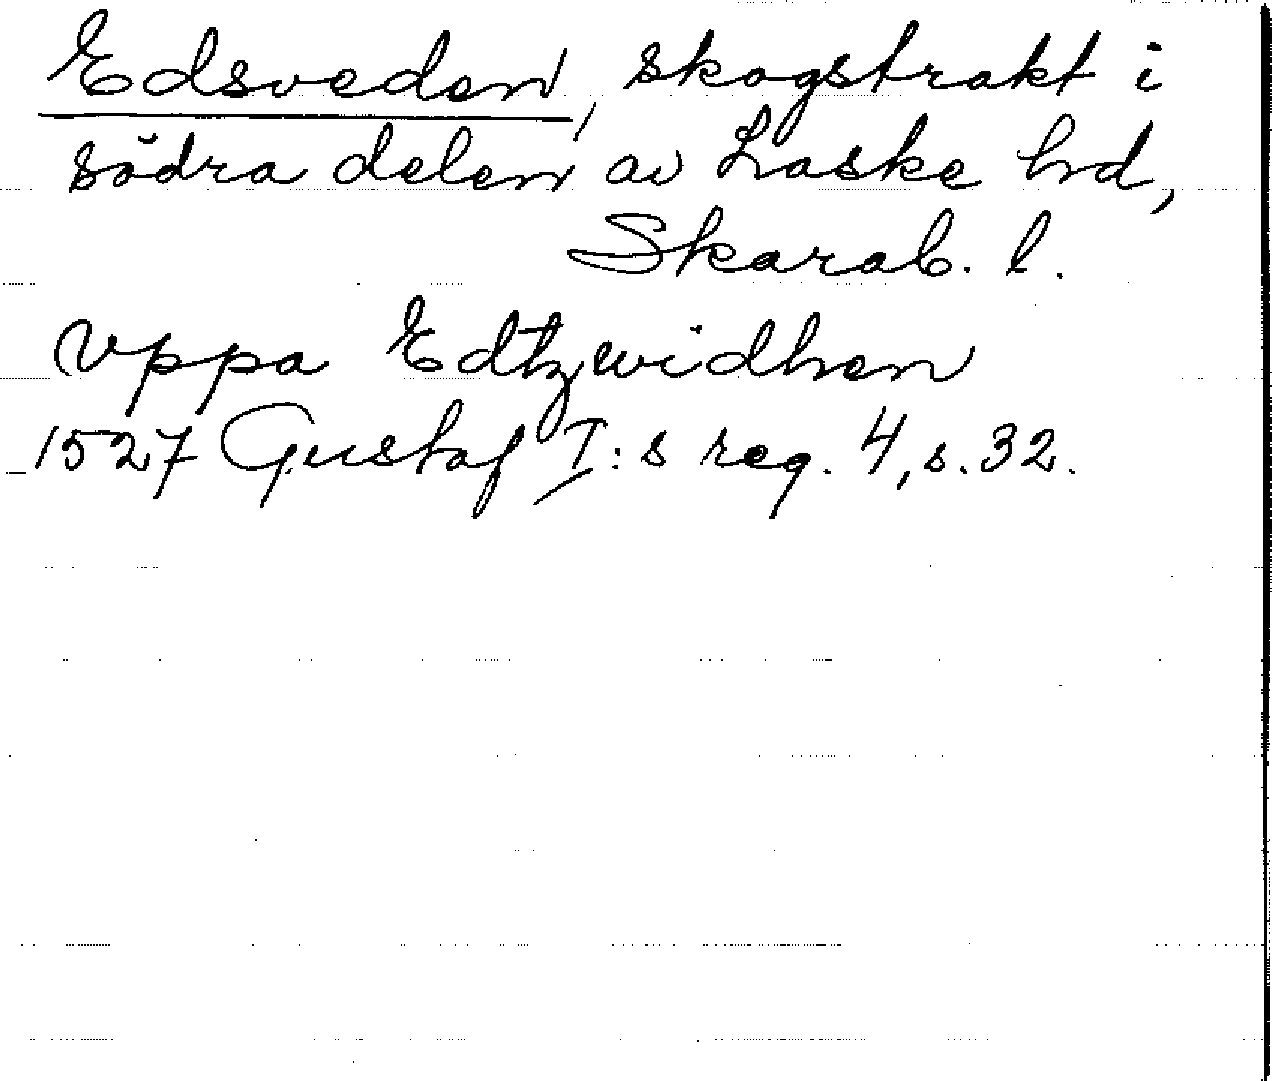 Edsveden, skogstrakt i
södra delen av Laske hd,
Skarab. l.
Vppa Edtzwidhen
1527 Gustaf I:s reg. 4, s. 32.